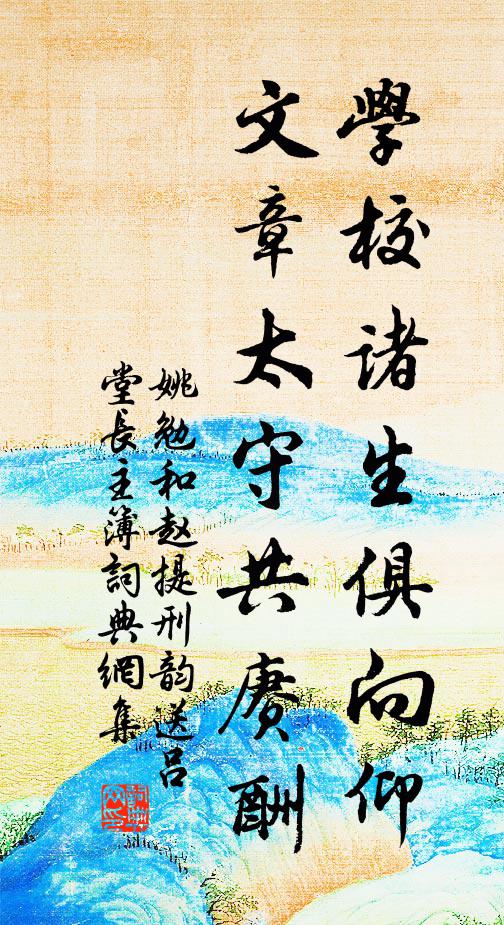 學校诸生俱向仰
文章太守共赓酬
姚勉和赵提刑韵送吕
堂長主簿詞典網集